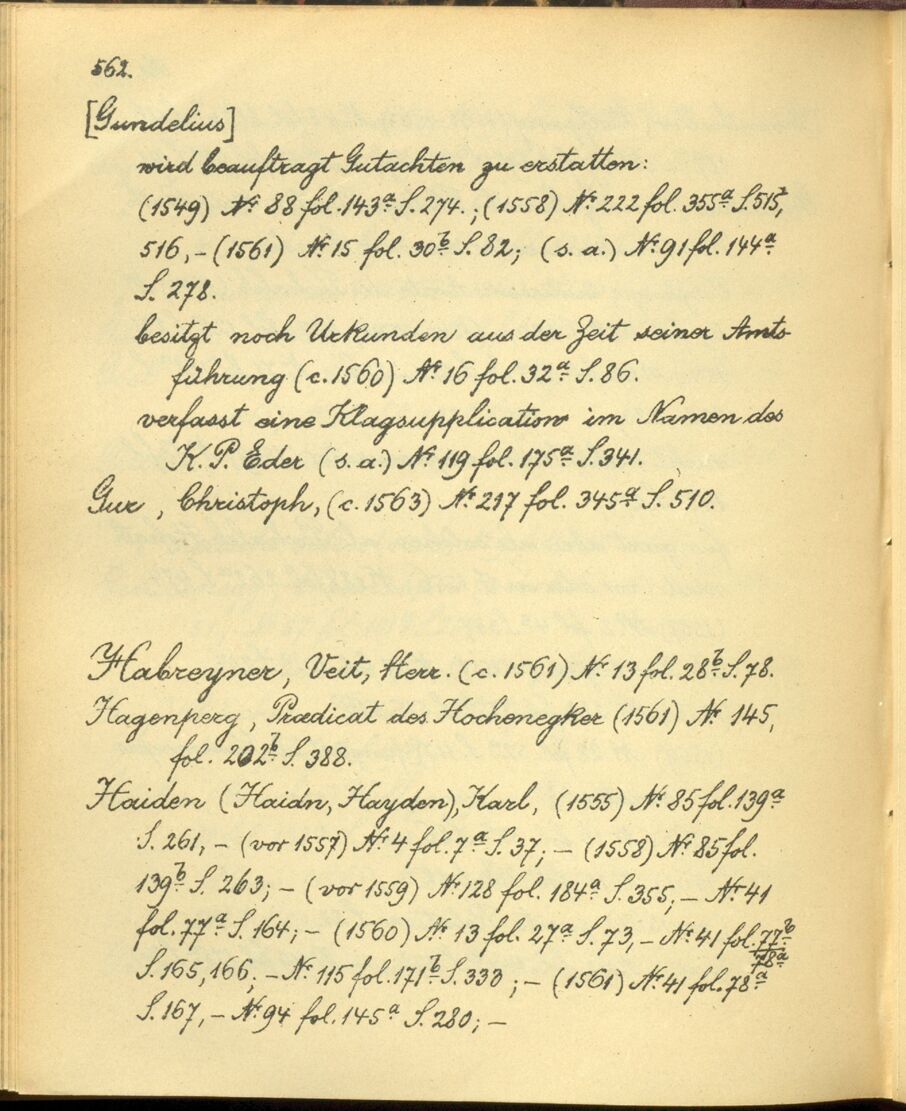 562.
[Gundelius]
wird beauftragt Gutachten zu erstatten:
(1549) Nr. 88 fol. 143a S. 274.; (1558) Nr. 222 fol. 355a S. 515,
516, – (1561) Nr. 15 fol. 30b S. 82; (s. a.) Nr. 91 fol. 144a
S. 278.
besitzt noch Urkunden aus der Zeit seiner Amts
führung (c. 1560) Nr. 16 fol. 32a S. 86.
verfasst eine Klagsupplication im Namen des
K. P. Eder (s. a.) Nr. 119 fol. 175a S. 341.
Gur, Christoph, (c. 1563) Nr. 217 fol. 345a S. 510.
Habreyner, Veit, Herr. (c. 1561) Nr. 13 fol. 28b S. 78.
Hagenperg, Prædicat des Hochenegker (1561) Nr. 145,
fol. 202b S. 388.
Haiden (Haidn, Hayden), Karl, (1555) Nr. 85 fol. 139a
S. 261, – (vor 1557) Nr. 4 fol. 7a S. 37; – (1558) Nr. 85 fol.
139b S. 263; – (vor 1559) Nr. 128 fol. 184a S. 355, – Nr. 41
fol. 77a S. 164; – (1560) Nr. 13 fol. 27a S. 73, – Nr. 41 fol. 77b
78a
S. 165, 166, – Nr. 115 fol. 171b S. 333; – (1561) Nr. 41 fol. 78a
S. 167, – Nr. 94 fol. 145a S. 280; –